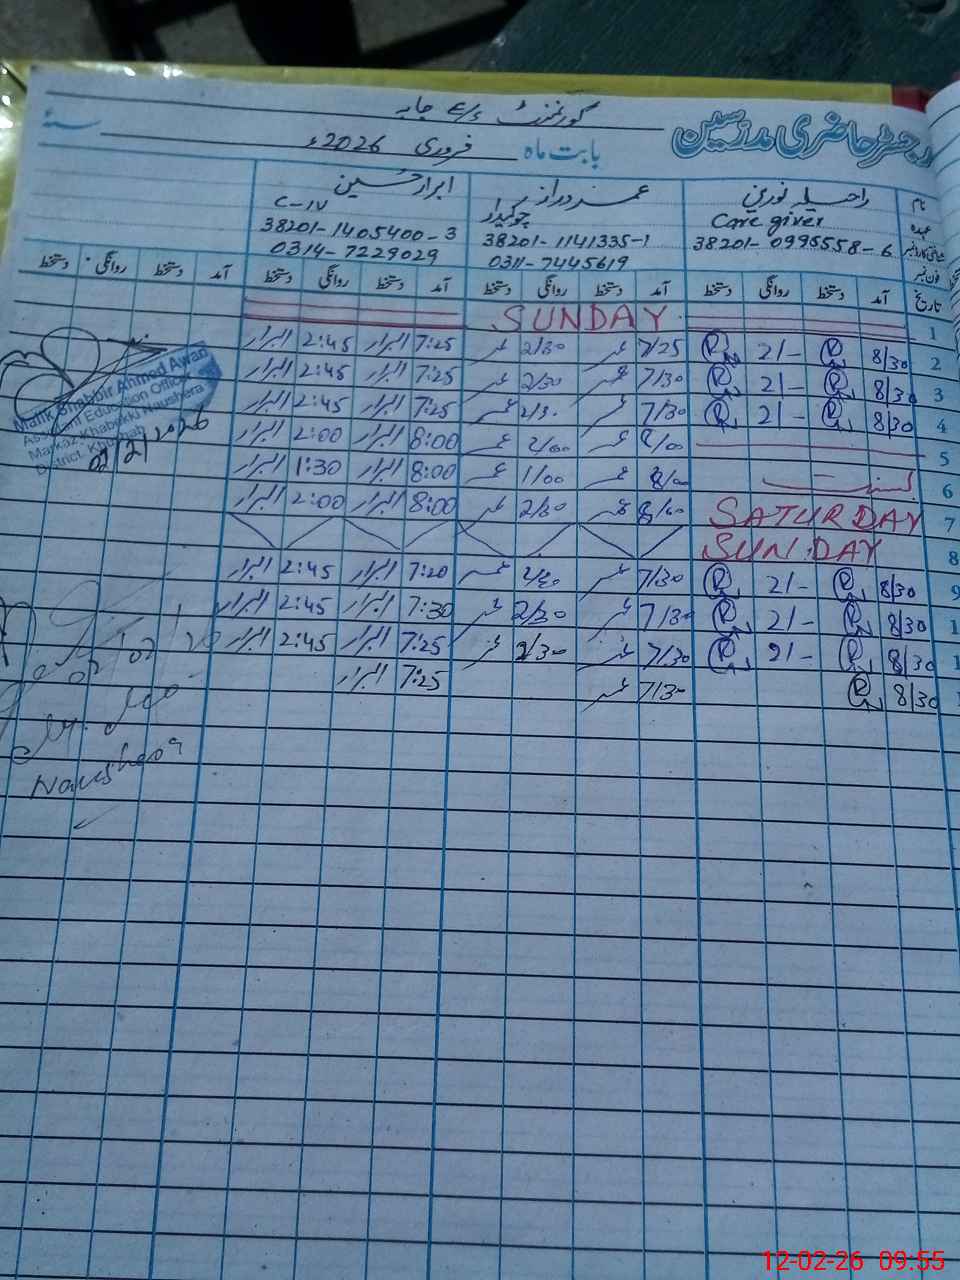 رجسٹر حاضری مدرسین
گورنمنٹ
بابت ماہ فروری 2026ء سنہ
نام راحیلہ نورین عمر دراز ابرار حسین
عہدہ Care giver چوکیدار C-IV
38201-0995558-6 38201-1141335-1 38201-1405400-3
فون نمبر 0311-7445619 0314-7229029
تاریخ آمد دستخط روانگی دستخط آمد دستخط روانگی دستخط آمد دستخط روانگی دستخط آمد دستخط روانگی دستخط
1 SUNDAY
2 8/30 2/- 7/25 عمر 2/30 عمر 7:25 ابرار 2:45 ابرار
3 8/30 2/- 7/30 عمر 2/30 عمر 7:25 ابرار 2:45 ابرار
4 8/30 2/- 7/30 عمر 2/30 عمر 7:25 ابرار 2:45 ابرار
5 8/00 عمر 2/00 عمر 8:00 ابرار 2:00 ابرار
6 8/00 عمر 1/00 عمر 8:00 ابرار 1:30 ابرار
7 SATURDAY 8/00 عمر 2/00 عمر 8:00 ابرار 2:00 ابرار
8 SUNDAY
9 8/30 2/- 7/30 عمر عمر 7:20 ابرار 2:45 ابرار
1 8/30 2/- 7/30 عمر 2/30 عمر 7:30 ابرار 2:45 ابرار
1 8/30 2/- 7/30 عمر 2/30 عمر 7:25 ابرار 2:45 ابرار
8/30 7/30 عمر 7:25 ابرار
Malik Shabbir Ahmed Awan
Assistant Education Officer
Markaz Khabekki Naushera
District. Khushab
02/2/2026
Naushera
12-02-26 09:55